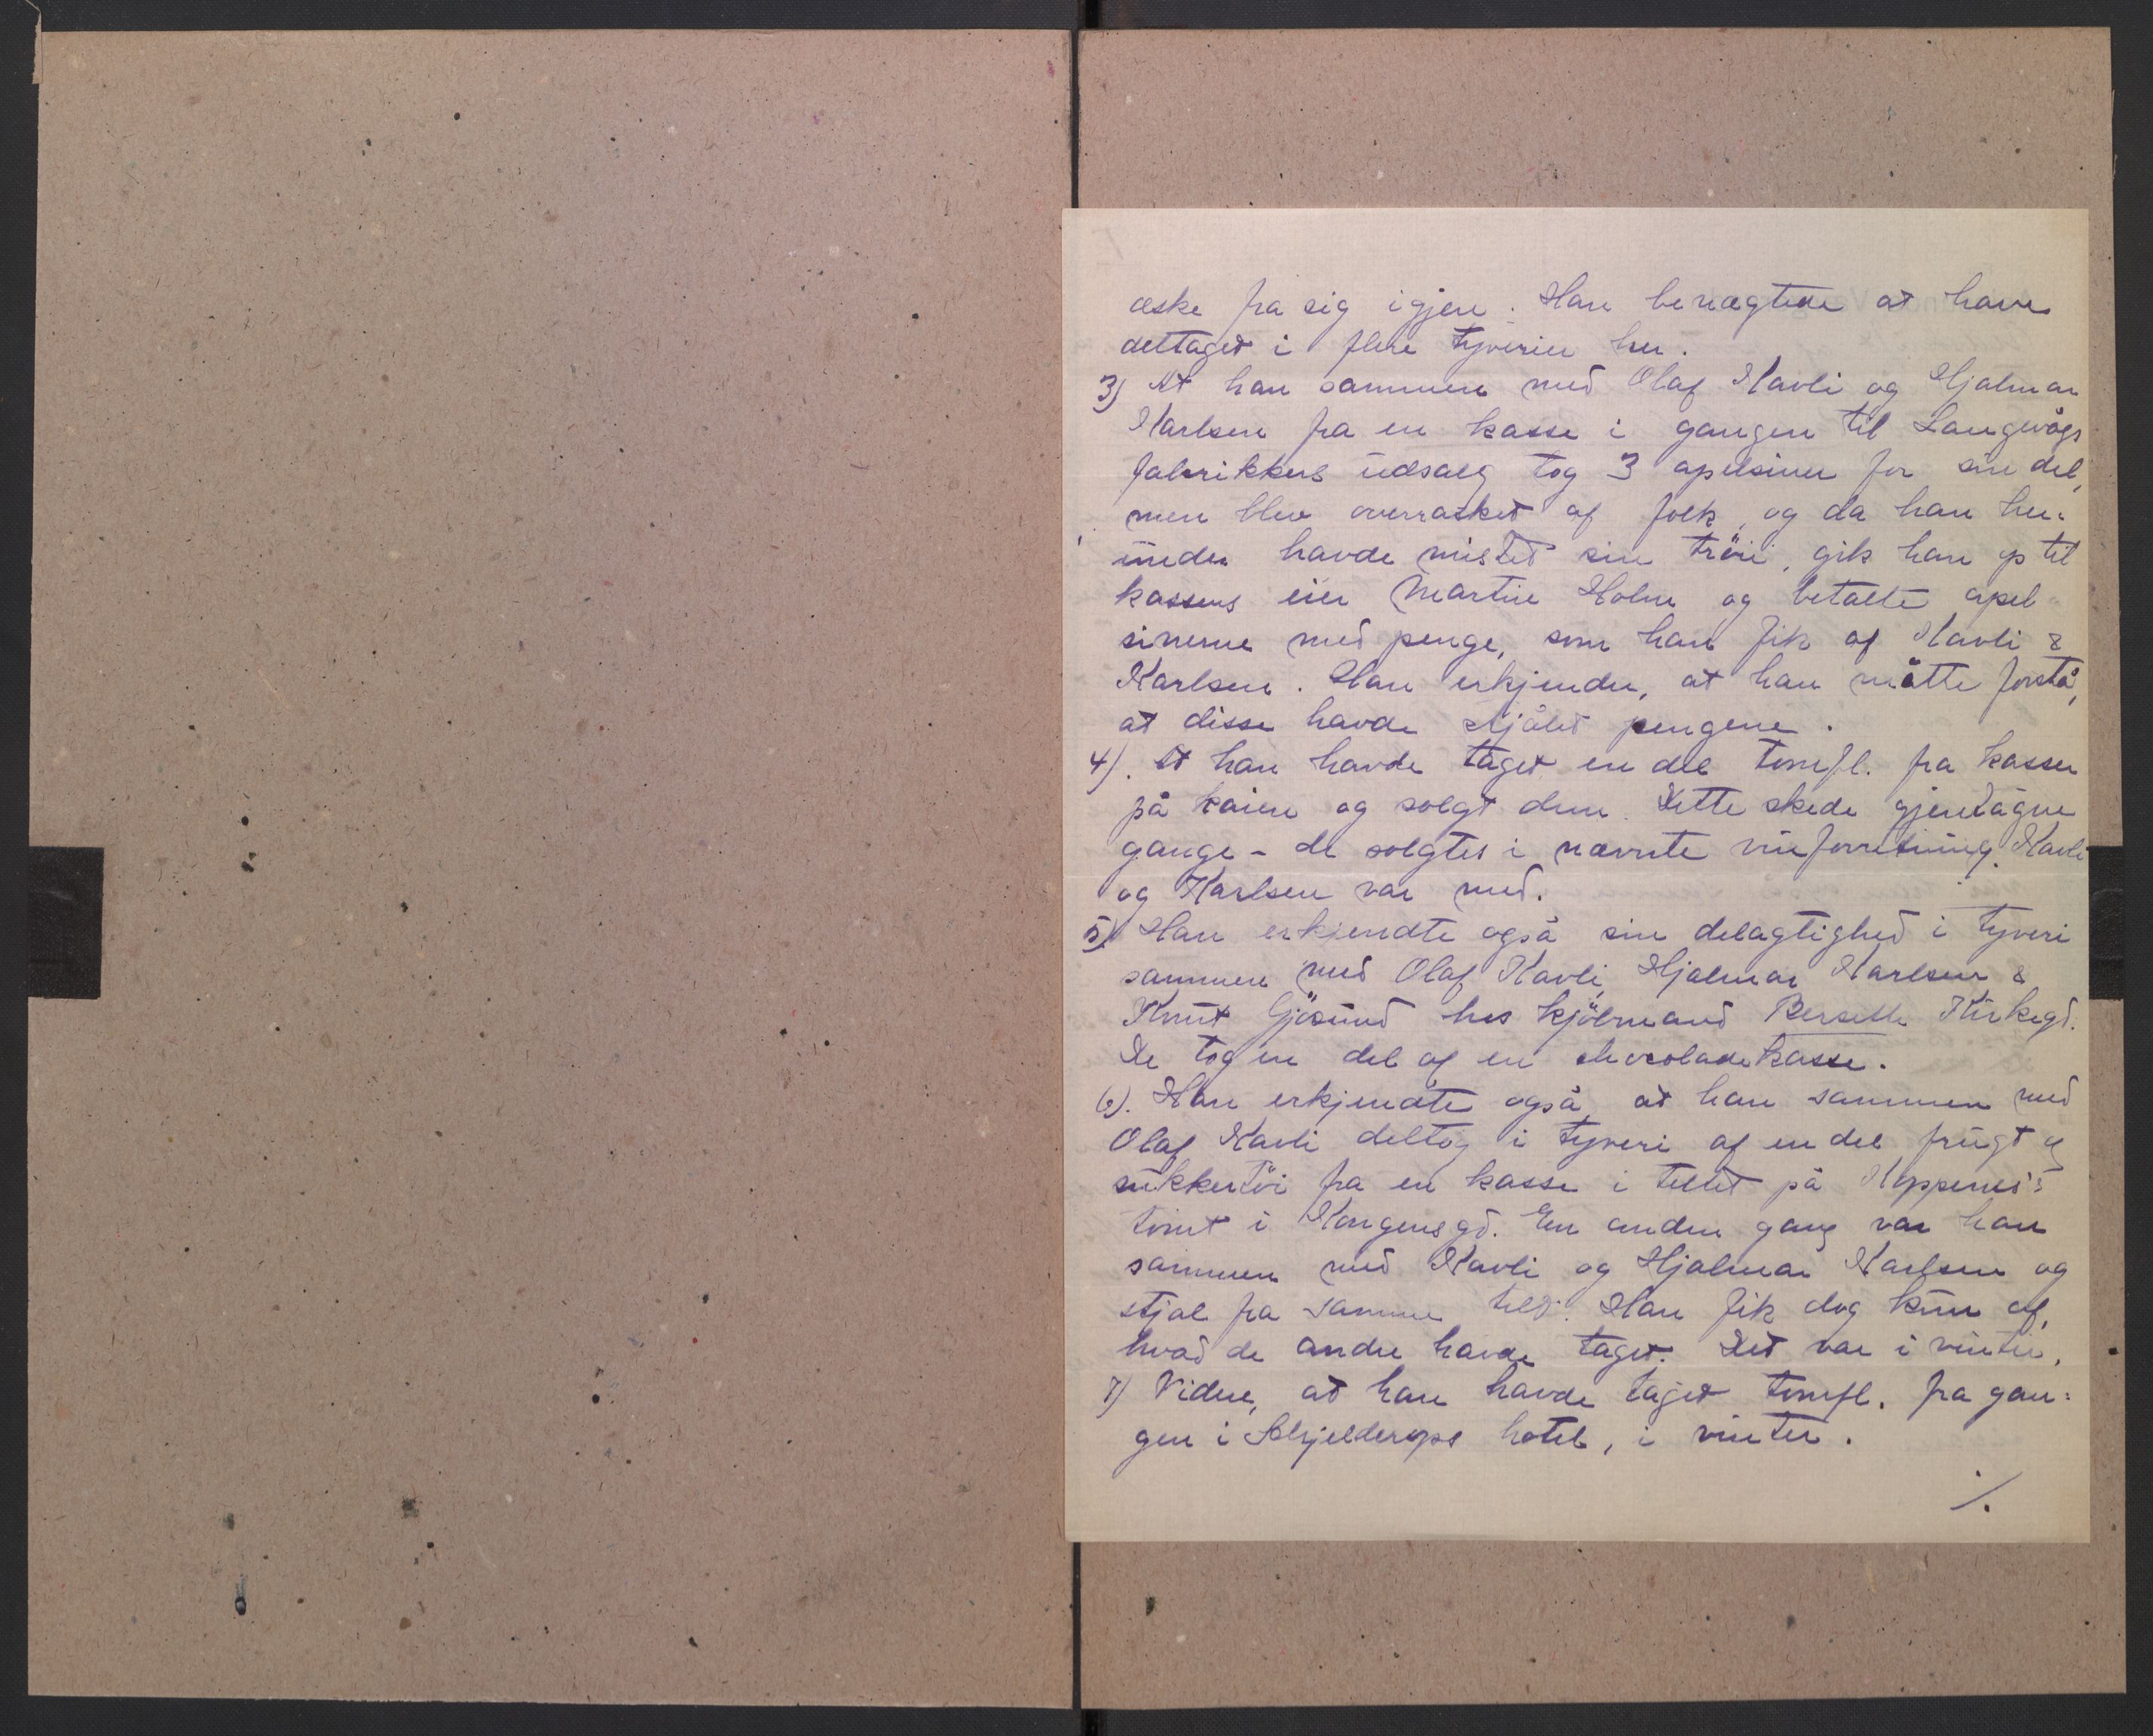 æske fra sig igjen. Han benægtede at have
deltaget i flere tyverier her.
3) At han sammen med Olaf Kavli og Hjalmar
Karlsen fra en kasse i gangen til Langevågs
fabrikkers udsalg tog 3 apelsiner for sin del,
men blev overrasket af folk, og da han her=
under havde mistet sin trøie, gik han op til
kassens eier Martin Holm og betalte apel
sinerne med penge, som han fik af Kavli &
Karlsen. Han erkjender, at han måtte forstå,
at disse havde stjålet pengene.
4). At han havde taget en del tomfl. fra kasser
på kaien og solgt dem. Dette skede gjentagne
gange - de solgtes i nævnte vinforretning. Kavli
og Karlsen var med.
5) Han erkjendte også sin delagtighed i tyveri
sammen med Olaf Kavli, Hjalmar Karlsen &
Knut Gjøsund hos kjøbmand Berseth Kirkegd.
De tog en del af en chocoladekasse.
6). Han erkjendte også, at han sammen med
Olaf Kavli deltog i tyveri af en del frugt og
sukkertøi fra en kasse i teltet på
tomt i Kongensgd. En anden gang var han
sammen med Kavli og Hjalmar Karlsen og
stjal fra samme telt. Han fik dog kun af,
hvad de andre havde taget. Det var i vinter.
7) Videre, at han havde taget tomfl. fra gan=
gen i Schjelderups hotel, i vinter.
./.